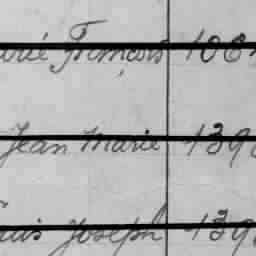 François 108
Jean Marie 139
Joseph 139